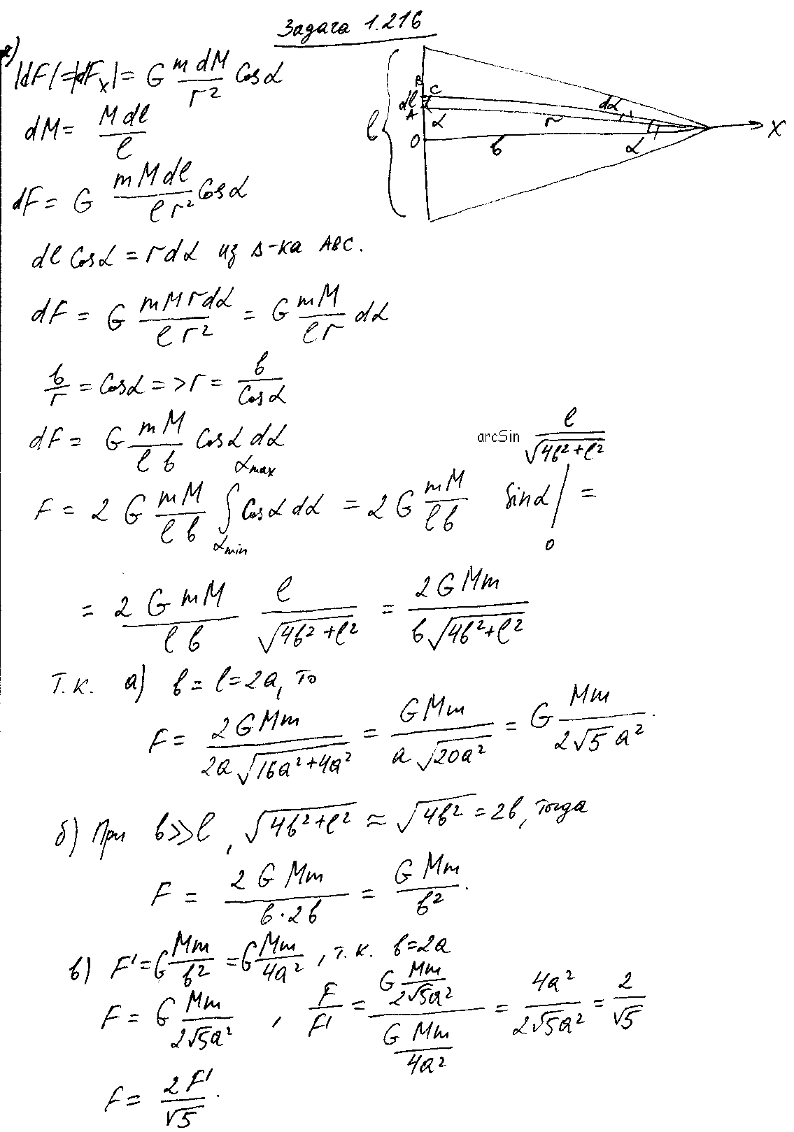 Задача 1.216
а)
|dF|=|dFx|= G m dM / r² Cosα
dM= M dl / l
dF= G m M dl / l r² Cosα
dl Cosα = r dα из Δ-ка ABC.
dF = G m M r dα / l r² = G m M / l r dα
b / r = Cosα => r = b / Cosα
dF = G m M / l b Cosα dα
F = 2 G m M / l b ∫ αmin αmax Cosα dα = 2 G m M / l b Sinα | 0 arcSin l / √4b²+l² =
= 2 G m M / l b l / √4b²+l² = 2 G M m / b √4b²+l²
т.к. а) b = l = 2a, то
F = 2 G M m / 2a √16a²+4a² = G M m / a √20a² = G M m / 2√5 a².
б) При b >> l, √4b²+l² ≈ √4b² = 2b, тогда
F = 2 G M m / b·2b = G M m / b².
в) F' = G M m / b² = G M m / 4a², т.к. b=2a
F = G M m / 2√5a² , F / F' = G M m / 2√5a² / G M m / 4a² = 4a² / 2√5a² = 2 / √5
F = 2F' / √5.
l
B
dl
C
A
α
O
b
r
dα
α
X